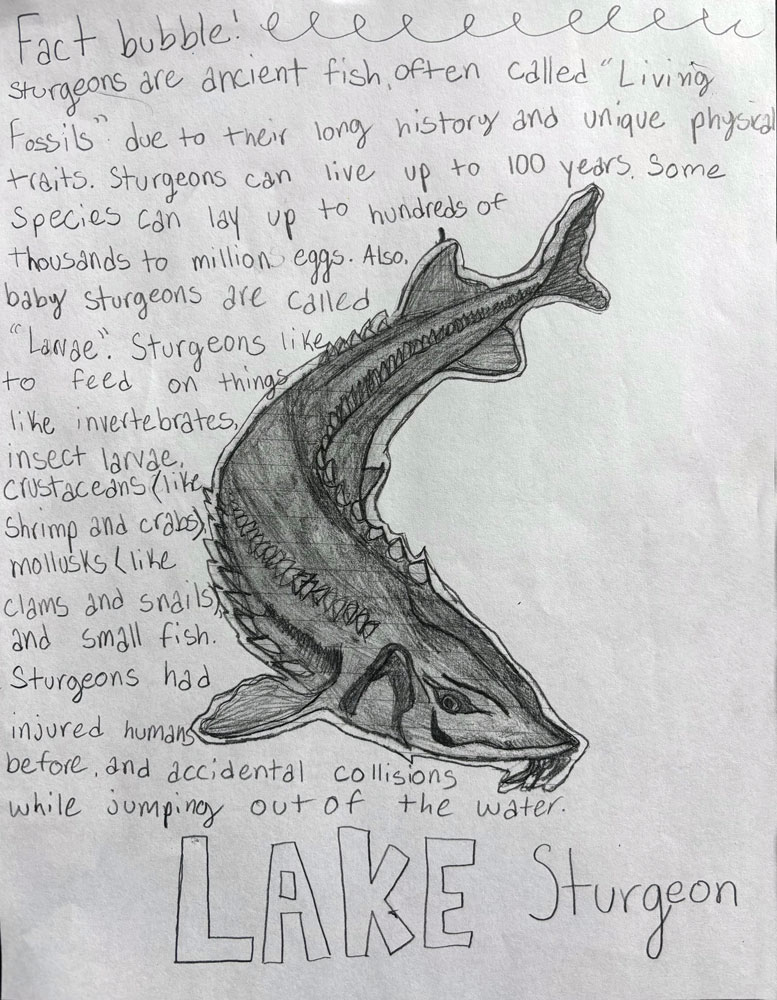 Fact bubble!
Sturgeons are ancient fish, often called "Living
Fossils" due to their long history and unique physical
traits. Sturgeons can live up to 100 years. Some
Species can lay up to hundreds of
thousands to million eggs. Also,
baby sturgeons are called
"Larvae". Sturgeons like
to feed on things
like invertebrates,
insect larvae,
crustaceans (like
Shrimp and crabs),
mollusks (like
clams and snails),
and small fish.
Sturgeons had
injured humans
before, and accidental collisions
while jumping out of the water.
LAKE Sturgeon